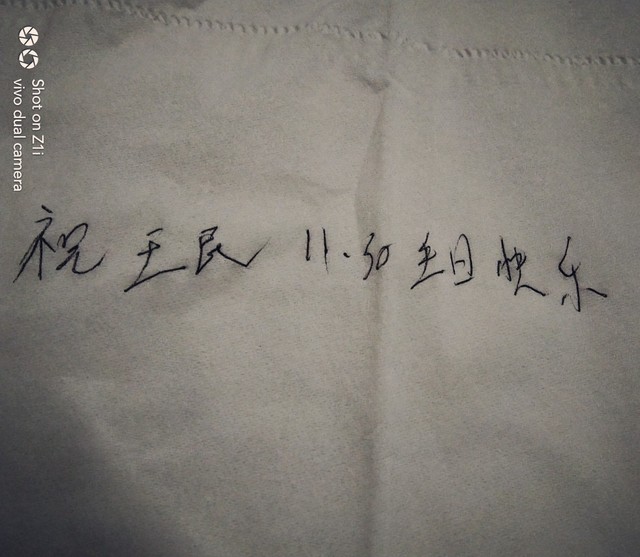 Shot on Z1i
vivo dual camera
祝 王民 11.30 生日快乐